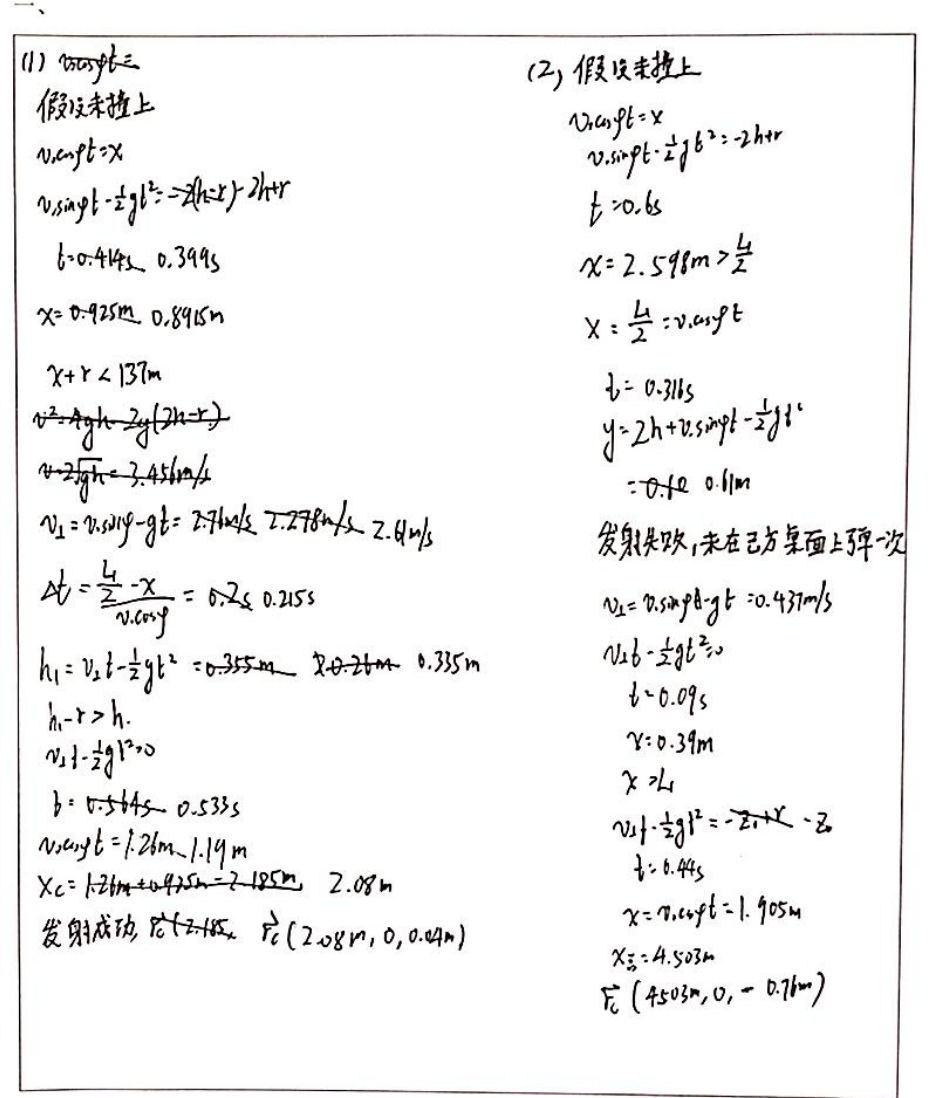 一、
(1) v₀cosφt=
假设未撞上
v₀cosφt=x
v₀sinφt-½gt²=-2(h-r) -2h+r
t=0.414s 0.399s
x=0.925m 0.8915m
x+r<1.37m
v²=4gh-2g(2h-r)
v=2√gh=3.456m/s
v⊥=v₀sinφ-gt=2.76m/s 2.278m/s 2.61m/s
Δt=(L₁/2-x)/(v₀cosφ)=0.2s 0.215s
h₁=v⊥t-½gt²=0.355m 0.26m 0.335m
h₁-r>h.
v⊥t-½gt²=0
t=0.564s 0.533s
v₀cosφt=1.26m 1.19m
Xc=1.26m+0.925m=2.185m 2.08m
发射成功, r⃗c(2.185, r⃗c(2.08m,0,0.04m)
(2) 假设未撞上
v₀cosφt=x
v₀sinφt-½gt²=-2h+r
t=0.6s
x=2.598m>L₁/2
x=L₁/2=v₀cosφt
t=0.316s
y=2h+v₀sinφt-½gt²
=0.60 0.61m
发射失败,未在己方桌面上弹一次
v⊥=v₀sinφ-gt=0.437m/s
v⊥t-½gt²=0
t=0.09s
x=0.39m
x>L₁
v⊥t-½gt²=-Z₀+r -Z₀
t=0.44s
x=v₀cosφt=1.905m
x总=4.503m
r⃗c(4.503m,0,-0.76m)